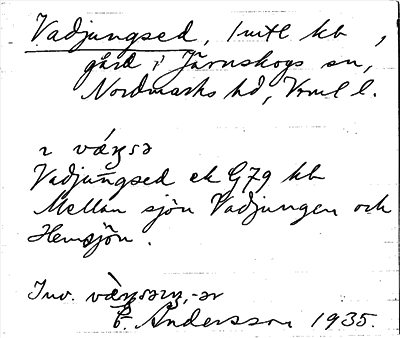 Vadjungsed, 1 mtl kb,
gård i Järnskogs sn,
Nordmarks hd, Vrml l.
Vadjungsed ek G79 kb
Mellan sjön Vadjungen och
Hemsjön.
Inv.
E. Andersson 1935.